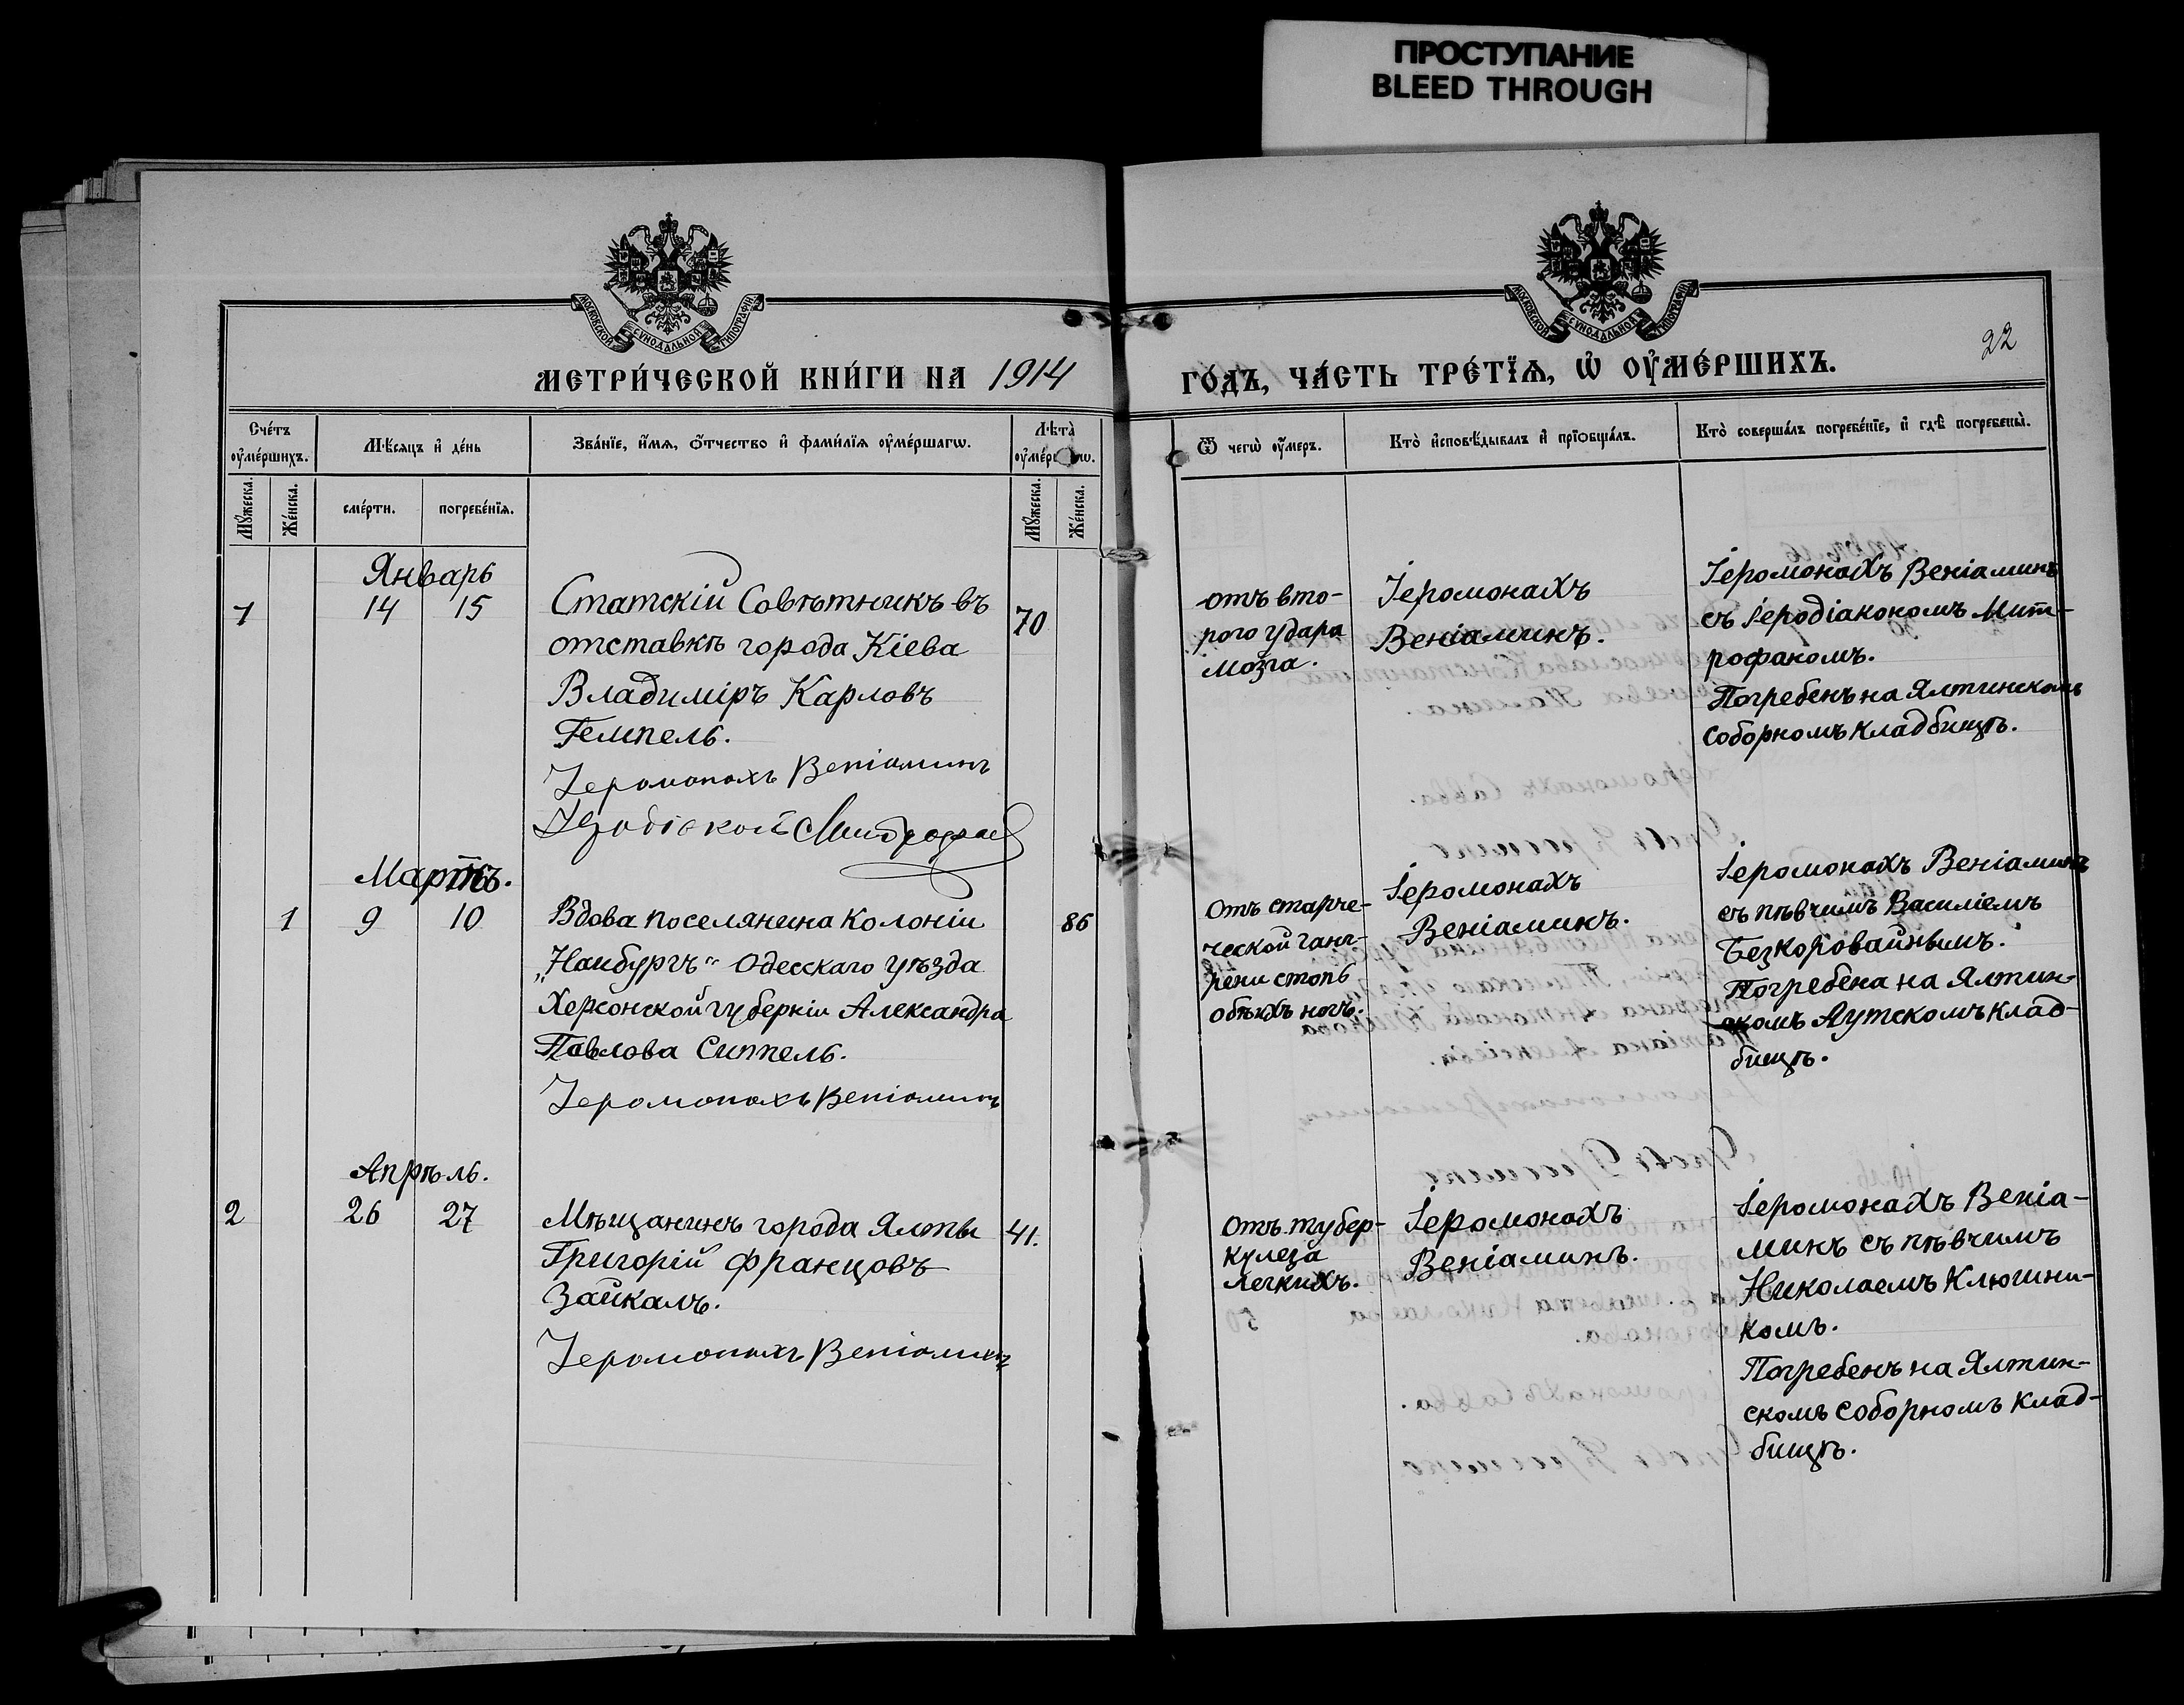 ПРОСТУПАНИЕ
BLEED THROUGH
МОСКОВСКОЙ СѴНОДАЛЬНОЙ ТИПОГРАФІИ
МОСКОВСКОЙ СѴНОДАЛЬНОЙ ТИПОГРАФІИ
22
МЕТРИ́ЧЕСКОЙ КНИ́ГИ НА 1914
ГО́ДЪ, ЧА́СТЬ ТРЕ́ТЇѦ, Ѡ҆ ОУ҆МЕ́РШИХЪ.
Сче́тъ
оу҆ме́ршихъ.
Мѣ́сяцъ и҆ де́нь
Зва́нїе, и҆́мѧ, ѻ҆́тчество и҆ фами́лїѧ оу҆ме́ршагѡ.
Лѣ́та̀
Ѿ чегѡ̀ оу҆́меръ.
Кто̀ и҆сповѣ́дывалъ и҆ прїѡбща́лъ.
Кто̀ соверша́лъ погребе́нїе, и҆ гдѣ̀ погребены̀.
Мꙋ́жеска.
Же́нска.
сме́рти.
погребе́нїѧ.
Мꙋ́жеска.
Же́нска.
Январь
1
14
15
Статскій Совѣтникъ въ
отставкѣ города Кіева
Владиміръ Карловъ
Гемпель.
Іеромонахъ Веніаминъ
Іеродіаконъ Митрофанъ
70
отъ вто-
рого удара
мозга.
Іеромонахъ
Веніаминъ.
Іеромонахъ Веніаминъ
съ Іеродіакономъ Мит-
рофаномъ.
Погребенъ на Ялтинскомъ
соборномъ кладбищѣ.
Мартъ.
1
9
10
Вдова поселянина колоніи
„Наибургъ“ Одесскаго уѣзда
Херсонской губерніи Александра
Павлова Сиппель.
Іеромонахъ Веніаминъ
86
Отъ старче-
ческой ганг-
рены стопъ
обѣихъ ногъ.
Іеромонахъ
Веніаминъ.
Іеромонахъ Веніаминъ
съ пѣвчимъ Василіемъ
Безкоровайнымъ.
Погребена на Ялтин-
скомъ Аутскомъ клад-
бищѣ.
Апрѣль.
2
26
27
Мѣщанинъ города Ялты
Григорій Францовъ
Зайкалъ.
Іеромонахъ Веніаминъ
41.
Отъ тубер-
кулеза
легкихъ.
Іеромонахъ
Веніаминъ.
Іеромонахъ Веніа-
минъ съ пѣвчимъ
Николаемъ Ключни-
комъ.
Погребенъ на Ялтин-
скомъ соборномъ клад-
бищѣ.